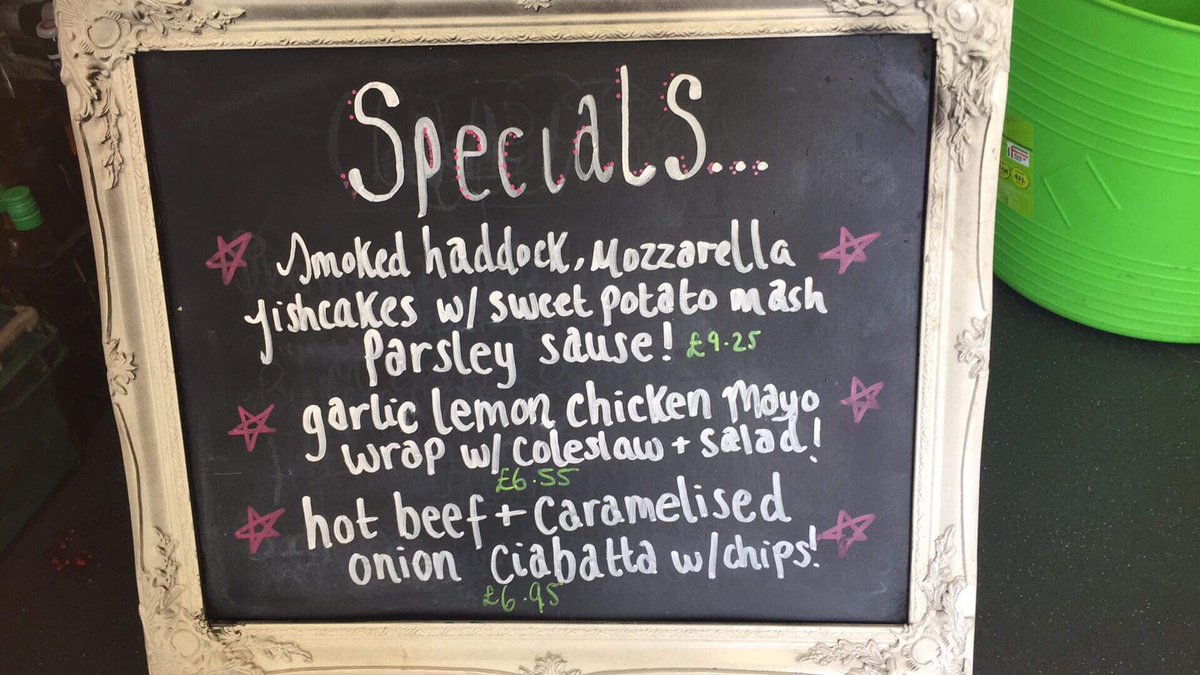 Specials...
Smoked haddock, Mozzarella
fishcakes w/ sweet potato mash
Parsley sause! £9.25
garlic lemon chicken Mayo
wrap w/ coleslaw + salad!
£6.55
hot beef + caramelised
onion Ciabatta w/chips!
£6.95